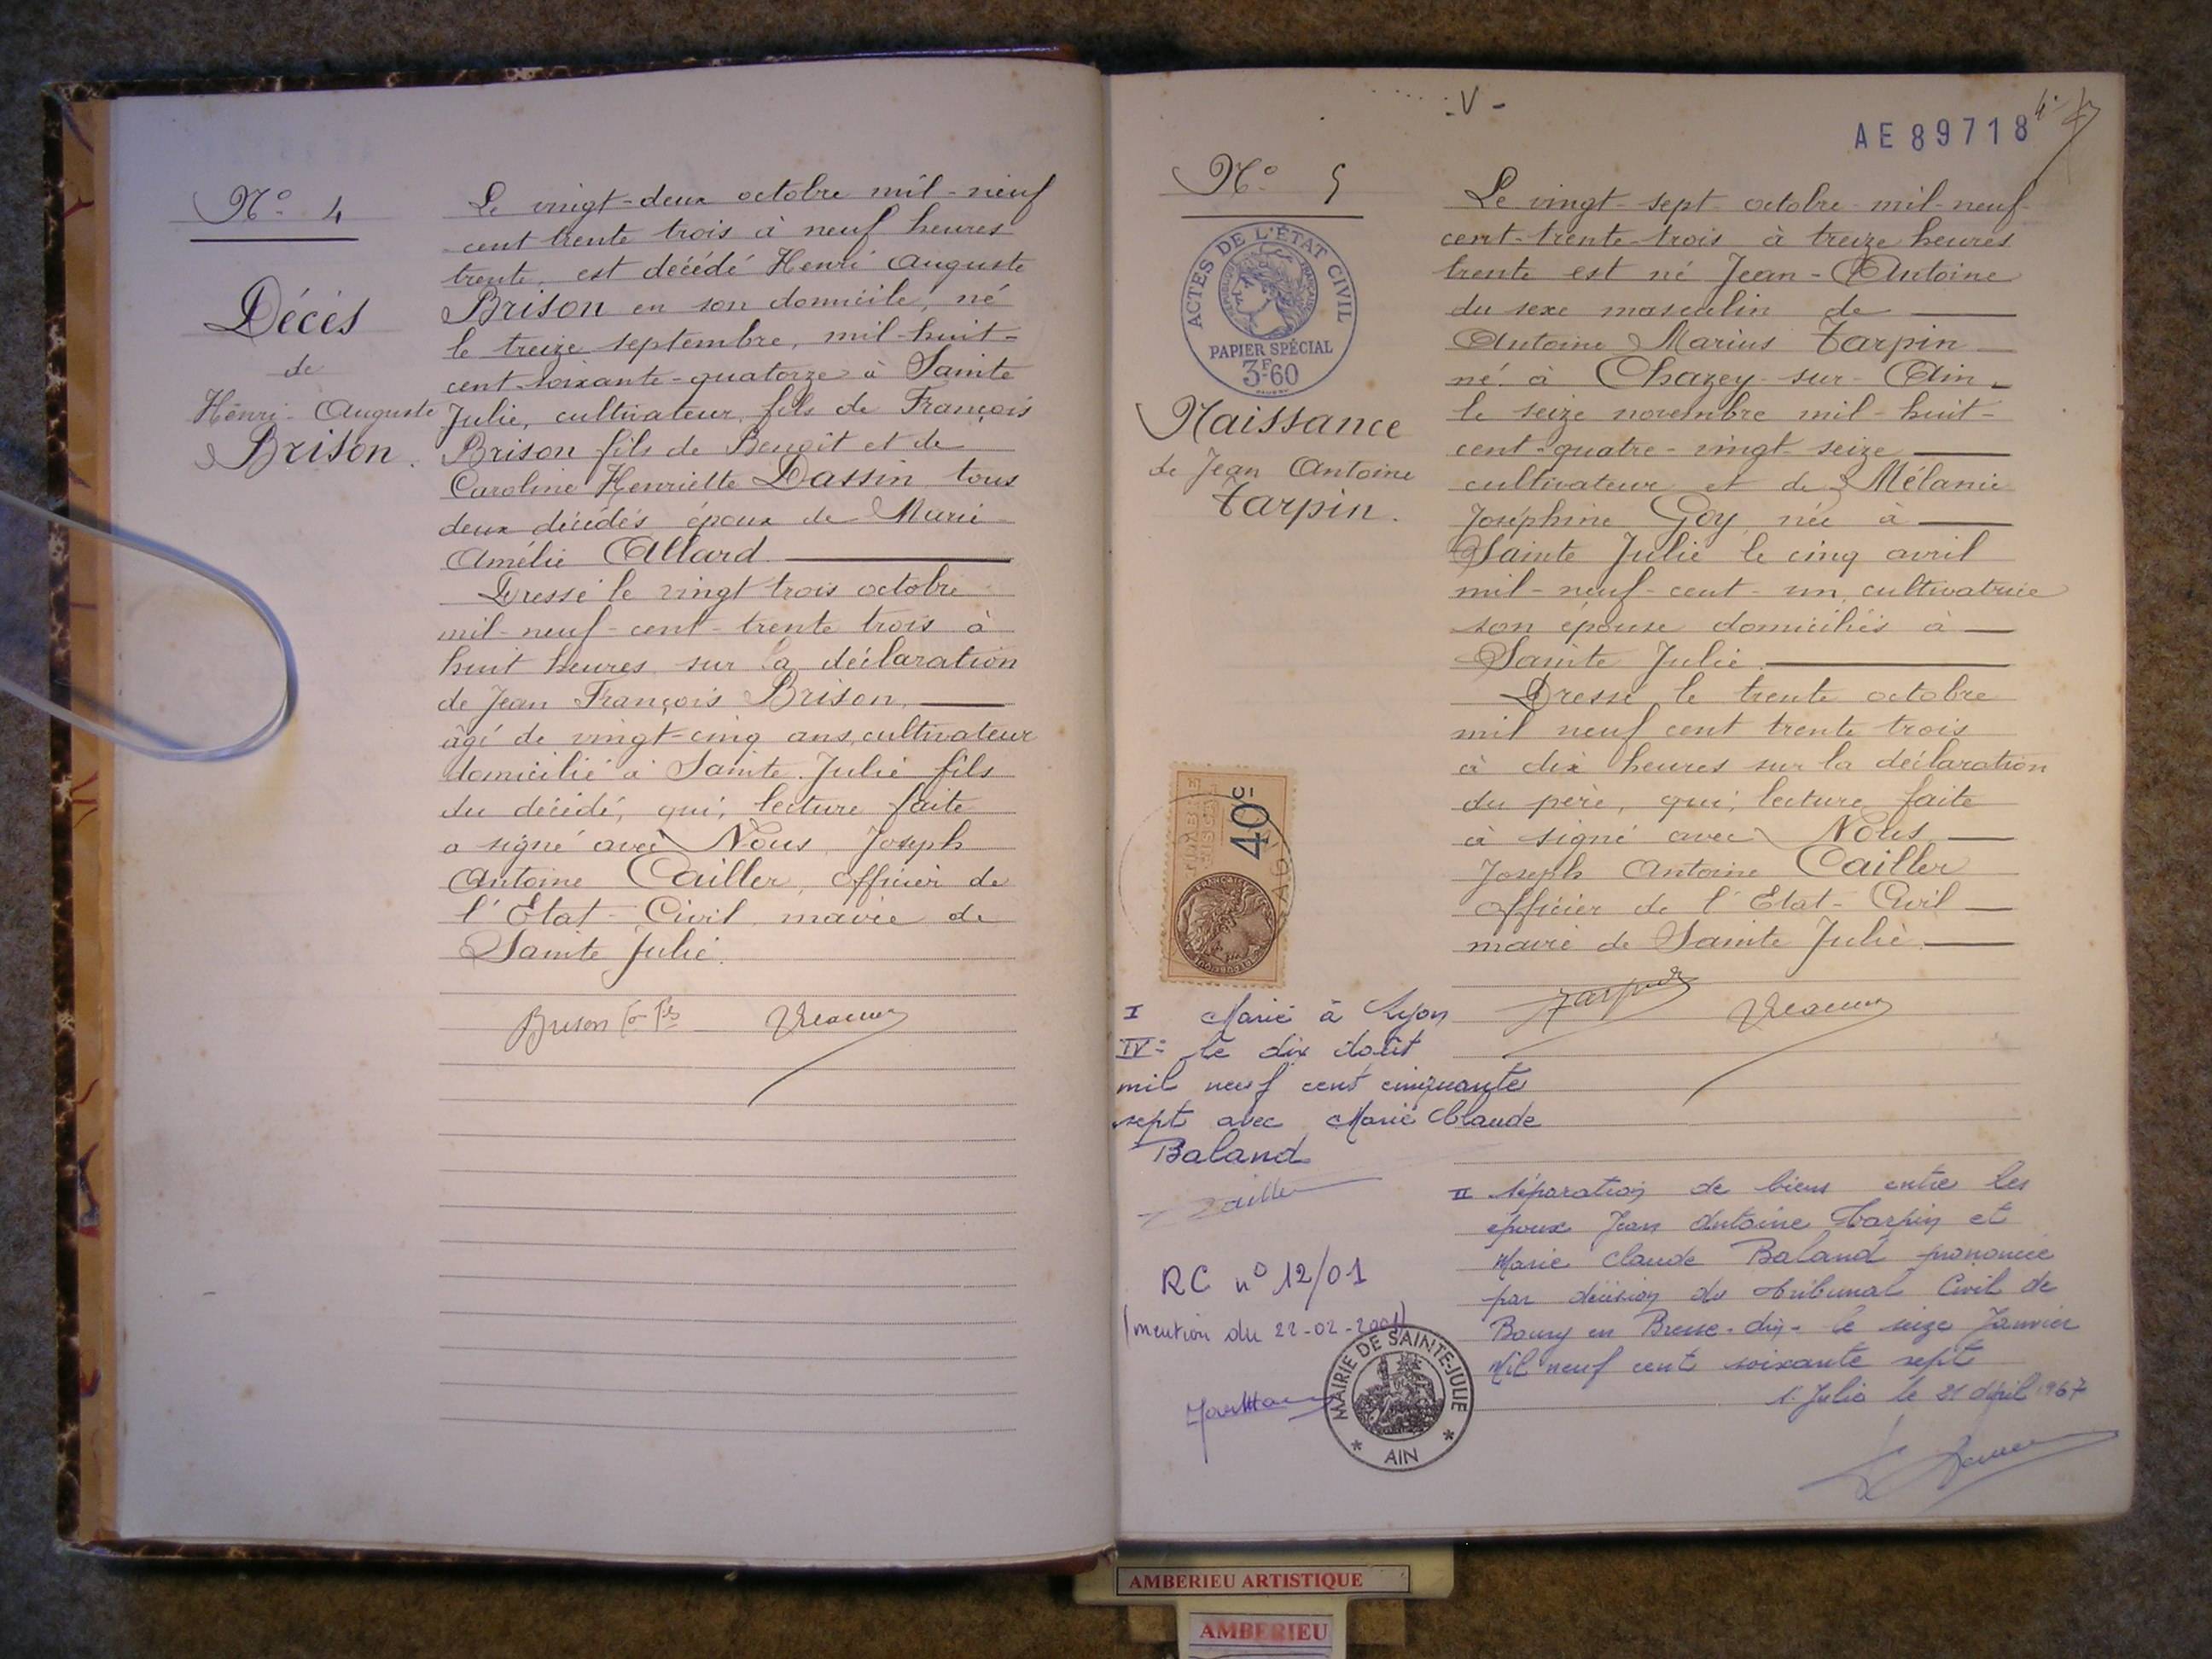 N° 4
Décès
de
Henri-Auguste
Brison.
Le vingt-deux octobre mil-neuf
cent trente trois à neuf heures
trente, est décédé Henri Auguste
Brison en son domicile, né
le treize septembre, mil-huit-
cent-soixante-quatorze à Sainte
Julie, cultivateur, fils de François
Brison fils de Benoît et de
Caroline Henriette Dassin tous
deux décédés époux de Marie
Amélie Allard
Dressé le vingt trois octobre
mil-neuf-cent-trente trois à
huit heures sur la déclaration
de Jean François Brison,
âgé de vingt-cinq ans, cultivateur
domicilié à Sainte Julie fils
du décédé, qui, lecture faite
a signé avec Nous Joseph
Antoine Cailler, officier de
l'Etat-Civil, maire de
Sainte Julie.
Brison
- V -
AE 89718
N° 5
ACTES DE L'ÉTAT CIVIL
RÉPUBLIQUE FRANÇAISE
PAPIER SPÉCIAL
3F.60
Naissance
de Jean Antoine
Tarpin.
Le vingt-sept octobre mil-neuf-
cent-trente-trois à treize heures
trente est né Jean-Antoine
du sexe masculin de
Antoine Marius Tarpin
né à Chazey-sur-Ain
le seize novembre mil-huit-
cent-quatre-vingt-seize
cultivateur et de Mélanie
Joséphine Goy, née à
Sainte Julie le cinq avril
mil-neuf-cent-un, cultivatrice
son épouse domiciliés à
Sainte Julie.
Dressé le trente octobre
mil neuf cent trente trois
à dix heures sur la déclaration
du père, qui, lecture faite
a signé avec Nous
Joseph Antoine Cailler
officier de l'Etat-Civil
maire de Sainte Julie.
40c
Tarpin
I Marié à Lyon
IVe le dix août
mil neuf cent cinquante
sept avec Marie Claude
Baland
Cailler
RC n° 12/01
(mention du 22-02-2001)
MAIRIE DE SAINTE-JULIE
* AIN *
II séparation de biens entre les
époux Jean Antoine Tarpin et
Marie Claude Baland prononcée
par décision du tribunal Civil de
Bourg en Bresse-Ain- le seize Janvier
Mil neuf cent soixante sept
S. Julie le 21 Avril 1967
AMBERIEU ARTISTIQUE
AMBERIEU